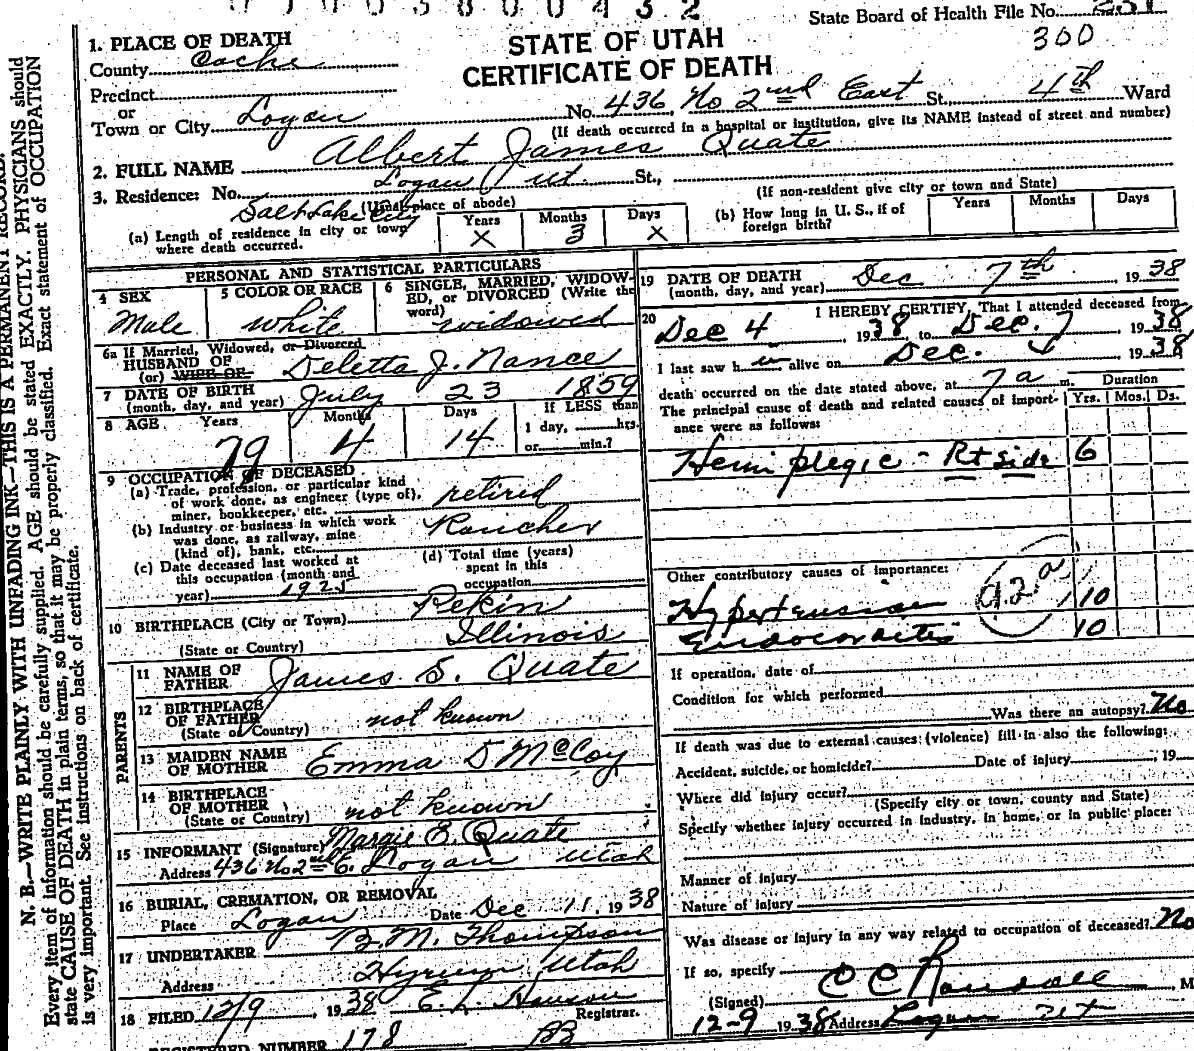 State Board of Health File No.
300
STATE OF UTAH
CERTIFICATE OF DEATH
1. PLACE OF DEATH
County Cache
Precinct
or
Town or City Logan No. 436 No 2nd East St., 4th Ward
(If death occurred in a hospital or institution, give its NAME instead of street and number)
2. FULL NAME Albert James Quate
3. Residence: No. Logan Ut. St.,
(Usual place of abode) (If non-resident give city or town and State)
Salt Lake City
(a) Length of residence in city or town where death occurred. Years X Months 3 Days X
(b) How long in U. S., if of foreign birth? Years Months Days
PERSONAL AND STATISTICAL PARTICULARS
4 SEX Male
5 COLOR OR RACE White
6 SINGLE, MARRIED, WIDOWED, or DIVORCED (Write the word) widowed
6a If Married, Widowed, or Divorced
HUSBAND OF
(or) WIFE OF Deletta J. Nance
7 DATE OF BIRTH (month, day, and year) July 23 1859
8 AGE Years 79 Months 4 Days 14 If LESS than 1 day, hrs. or min.?
9 OCCUPATION OF DECEASED
(a) Trade, profession, or particular kind of work done, as engineer (type of), miner, bookkeeper, etc. retired
(b) Industry or business in which work was done, as railway, mine (kind of), bank, etc. Rancher
(c) Date deceased last worked at this occupation (month and year) 1925
(d) Total time (years) spent in this occupation
10 BIRTHPLACE (City or Town) Pekin
(State or Country) Illinois
PARENTS
11 NAME OF FATHER James S. Quate
12 BIRTHPLACE OF FATHER (State or Country) not known
13 MAIDEN NAME OF MOTHER Emma D McCoy
14 BIRTHPLACE OF MOTHER (State or Country) not known
15 INFORMANT (Signature) Margie B. Quate
Address 436 No 2nd E. Logan Utah
16 BURIAL, CREMATION, OR REMOVAL
Place Logan Date Dec 11, 1938
17 UNDERTAKER B. M. Thompson
Address Hyrum Utah
18 FILED 12/9, 1938 E. L. Hanson
Registrar.
REGISTERED NUMBER 178
19 DATE OF DEATH (month, day, and year) Dec 7th, 1938
20 I HEREBY CERTIFY, That I attended deceased from
Dec 4 1938, to Dec. 7, 1938
I last saw h im alive on Dec. 1938
death occurred on the date stated above, at 7 a m.
The principal cause of death and related causes of importance were as follows:
Duration
Yrs. Mos. Ds.
Hemiplegic - Rt side 6
Other contributory causes of importance:
92a
Hypertension 10
Endocarditis 10
If operation, date of
Condition for which performed
Was there an autopsy? No
If death was due to external causes (violence) fill in also the following:
Accident, suicide, or homicide? Date of injury, 19
Where did injury occur?
(Specify city or town, county and State)
Specify whether injury occurred in industry, in home, or in public place:
Manner of injury
Nature of injury
Was disease or injury in any way related to occupation of deceased? No
If so, specify
(Signed) C C Randall, M
12-9 1938 Address Logan Ut
N. B.—WRITE PLAINLY WITH UNFADING INK—THIS IS A PERMANENT RECORD.
Every item of information should be carefully supplied. AGE should be stated EXACTLY. PHYSICIANS should
state CAUSE OF DEATH in plain terms, so that it may be properly classified. Exact statement of OCCUPATION
is very important. See instructions on back of certificate.